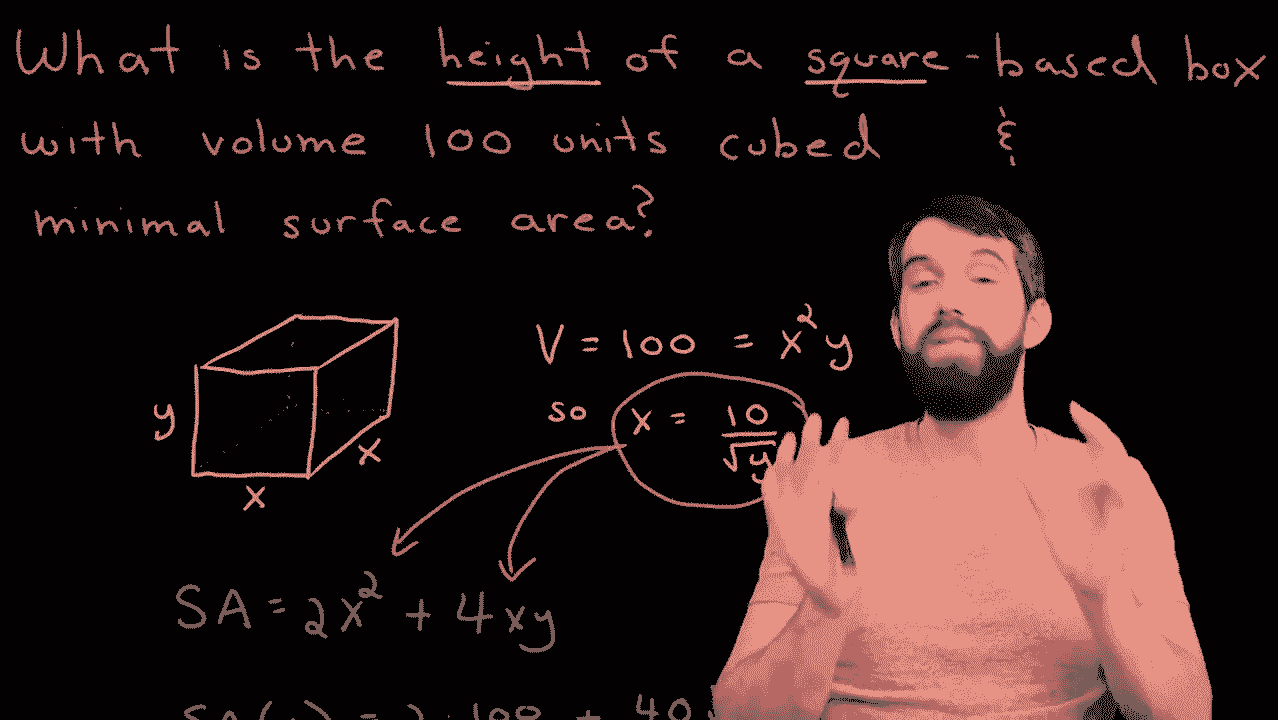 What is the height of a square-based box
with volume 100 units cubed &
minimal surface area?
V = 100 = x²y
so x = 10/√y
y
x
x
SA = 2x² + 4xy
2 · 100 + 40